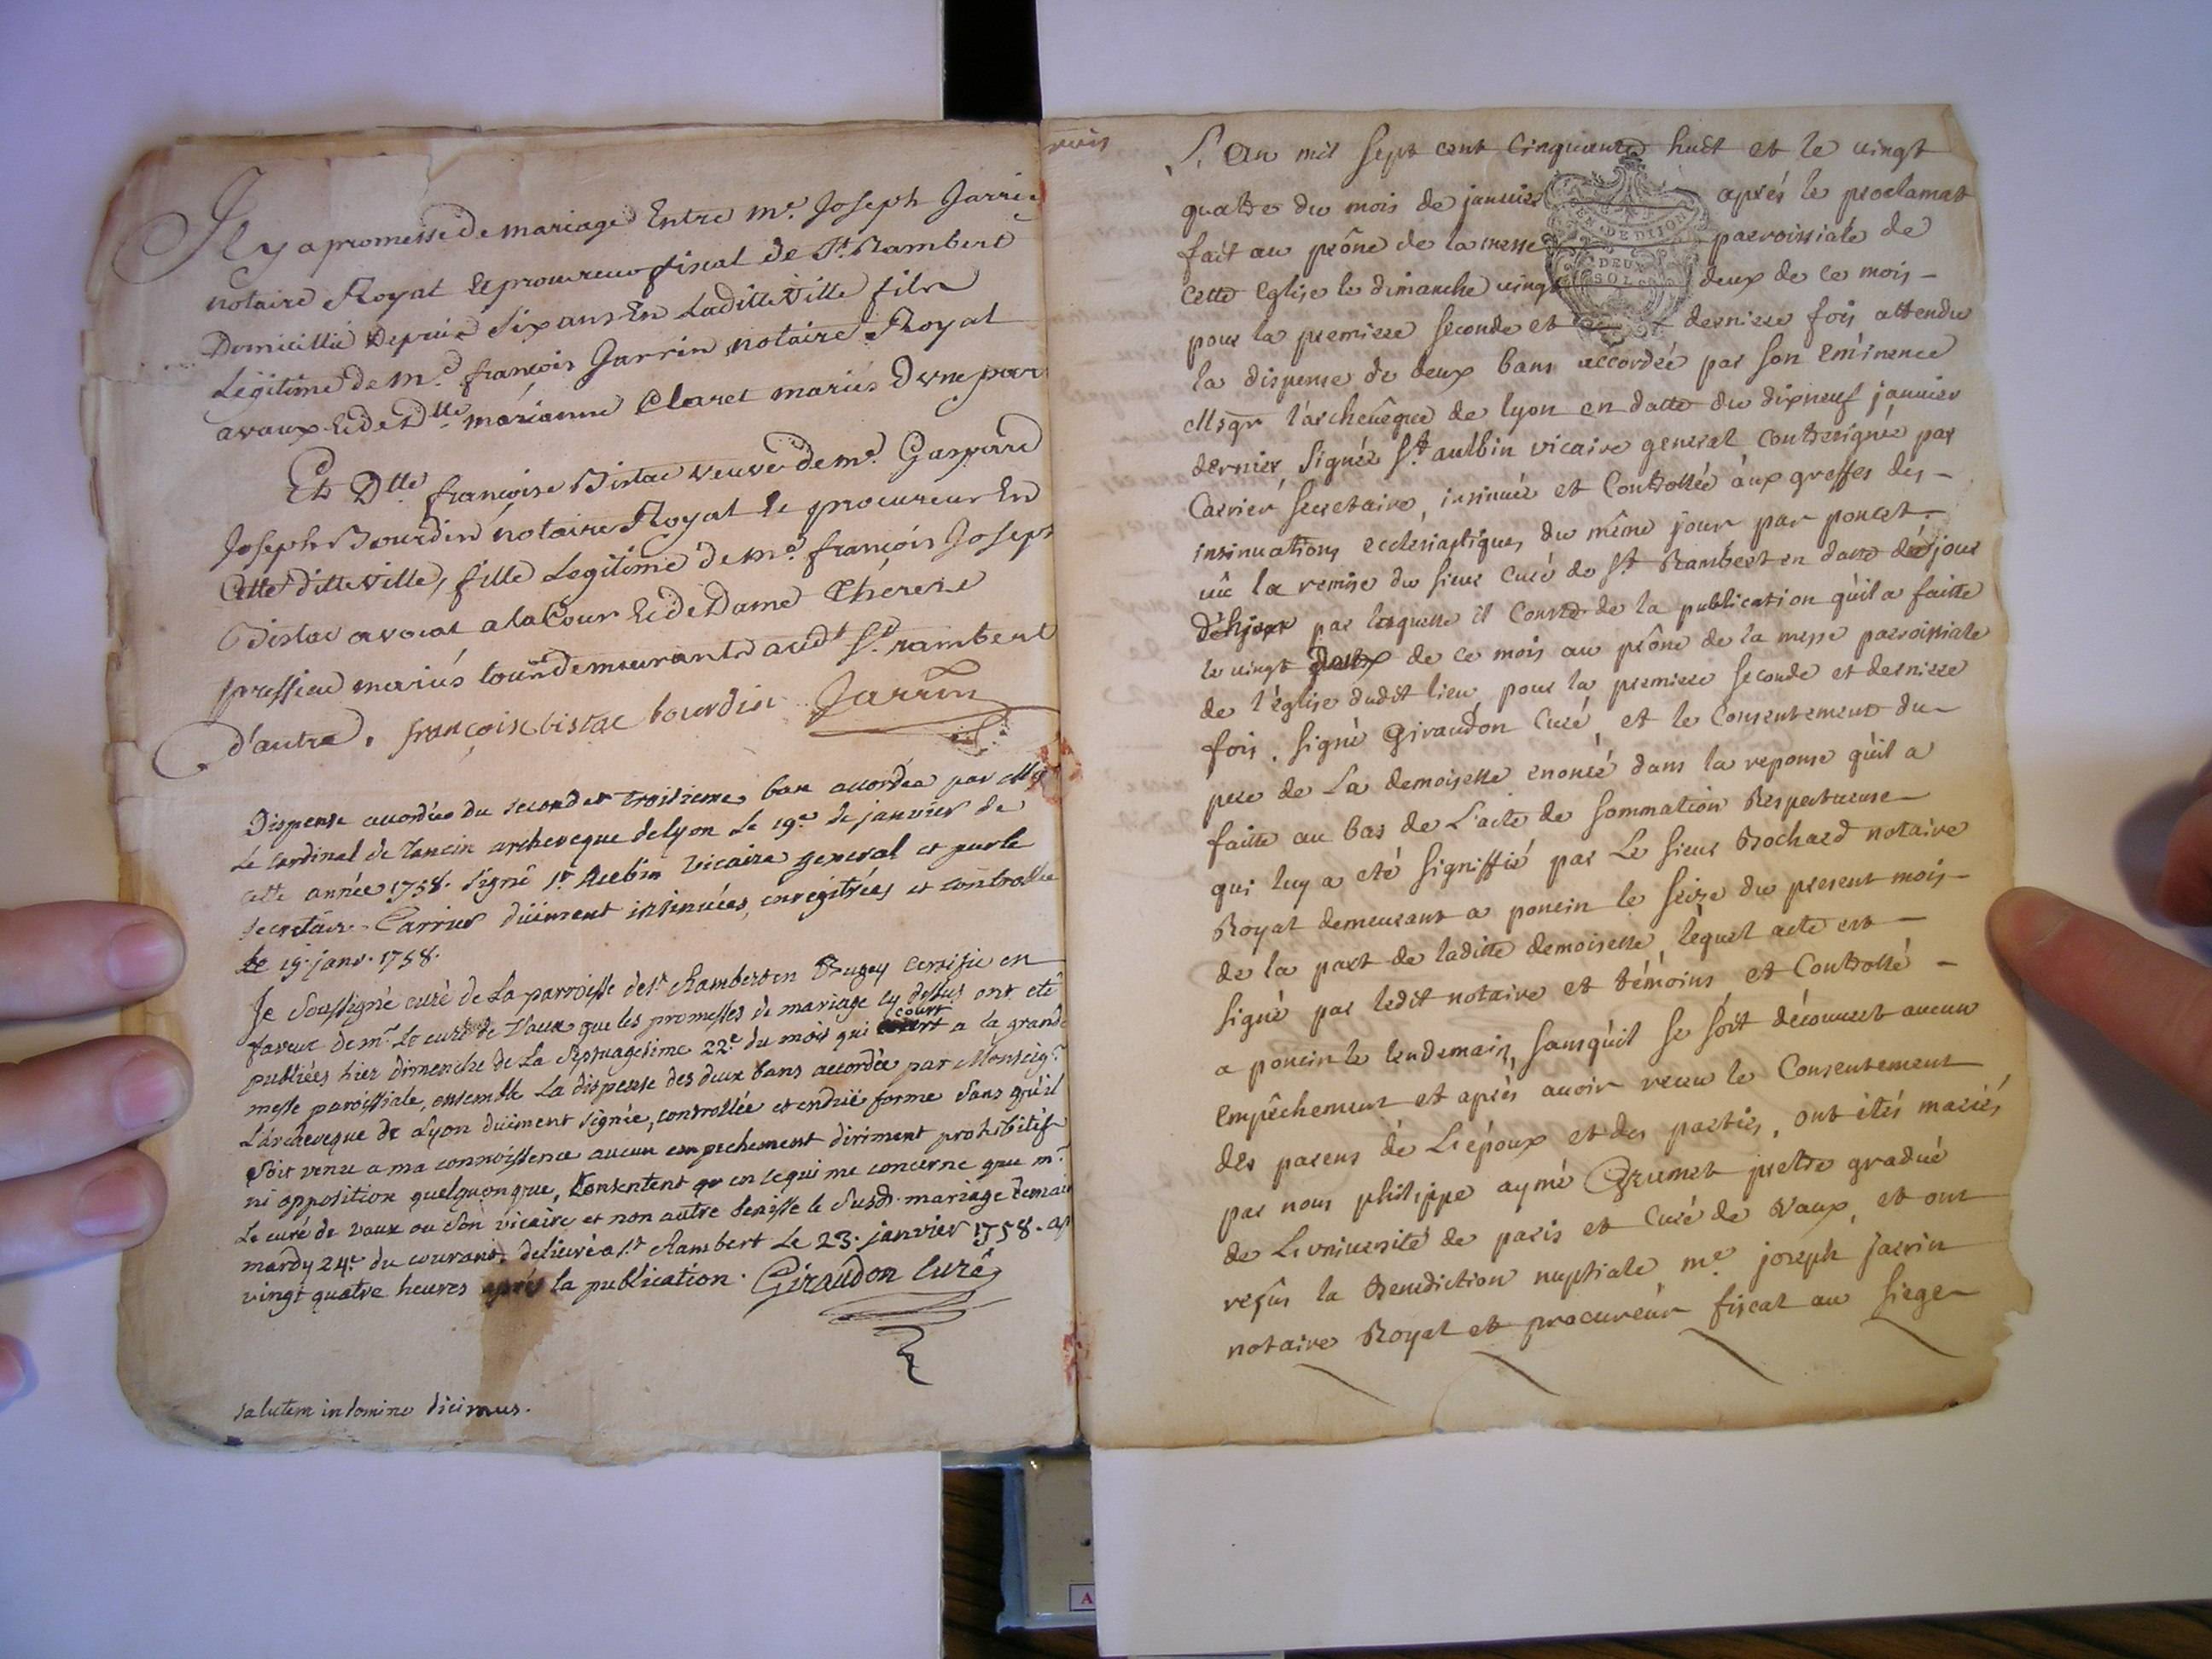 Il y a promesse de mariage Entre me. Joseph Jarrin
notaire Royal et procureur fiscal de St. Rambert
Domicillié Depuis Six ans En Laditte Ville fils
Légitime de me. françois Jarrin notaire Royal
avaux Et de Dlle. marianne Claret mariés D'une part
Et Dlle. françoise Bistac veuve de me. Gaspard
Joseph Bourdin notaire Royal et procureur En
Cette ditte ville, fille Legitime de me. françois Joseph
Bistac avocat a la Cour Et de Dame Thérese
mariés tous demeurants audt. St. rambert
d'autre. françoise bistac bourdin Jarrin
Dispense accordée du second et troisieme ban accordée par Mgr
Le Cardinal de Tancin archeveque de lyon Le 19e de janvier de
cette année 1758. signé St. Aubin Vicaire general et par le
secretaire Carrier düiment insinuées, enregitrées et controllée
Le 19. janv. 1758.
Je soussigné curé de La parroisse de St. Rambert en Bugey certifie en
faveur de mr. Le curé de Vaux que les promesses de mariage cy dessus ont eté
publiées hier dimenche de La septuagesime 22e. du mois qui court a la grande
messe paroissiale, ensemble La dispense des deux bans accordée par Monseigr.
L'archeveque de Lyon düiment signée, controllée et endüe forme sans qu'il
soit venu a ma connoissence aucun empechement diriment prohibitif
ni opposition quelquonque, Consentent qu en ce qui me concerne que mr.
Le curé de vaux ou son vicaire et non autre benisse le susd. mariage demain
mardy 24e. du courant, delivré a St. Rambert Le 23. janvier 1758. ap
vingt quatre heures après la publication. Giraudon Curé
salutem in domino dicimus.
L'an mil sept cent cinquante huit et le vingt
quatre du mois de janvier après le proclamat
EN. DE DIJON
fait au prône de la messe parroissiale de
DEUX
SOLS
cette Eglise le dimanche vingt deux de ce mois –
pour la premiere seconde et derniere fois attendu
la dispense de deux bans accordée par son Eminence
Msgr l'archevêque de lyon en datte du dixneuf janvier
dernier signée St. aulbin vicaire general contresignée par
Carrier secretaire, insinuée et Controllée aux greffes des –
insinuations ecclésiastiques du même jour par poncet.
vû la remise du sieur curé de St. Rambert en datte du jour
d'hjer par laquelle il Conste de la publication qu'il a faitte
le vingt deux de ce mois au prône de la messe parroissiale
de l'église dudit lieu pour la premiere seconde et derniere
fois. signé Giraudon Curé, et le Consentement du –
pere de La demoiselle enoncé dans la reponse qu'il a
faitte au bas de L'acte de sommation Respectueuse –
qui luy a eté signiffié par Le sieur Rochard notaire
Royal demeurant a poncin le seize du present mois –
de la part de laditte demoiselle, lequel acte est –
signé par ledit notaire et témoins et Controllé –
a poncin le lendemain, sans qu'il se soit découvert aucun
empêchement et après avoir receu le Consentement
des parens de L'époux et des parties, ont étés mariés,
par nous philippe aymé Grumet pretre gradué
de L'université de paris et Curé de Vaux, et ont
reçus la Benediction nuptiale, me. joseph Jarrin
notaire Royal et procureur fiscal au siege